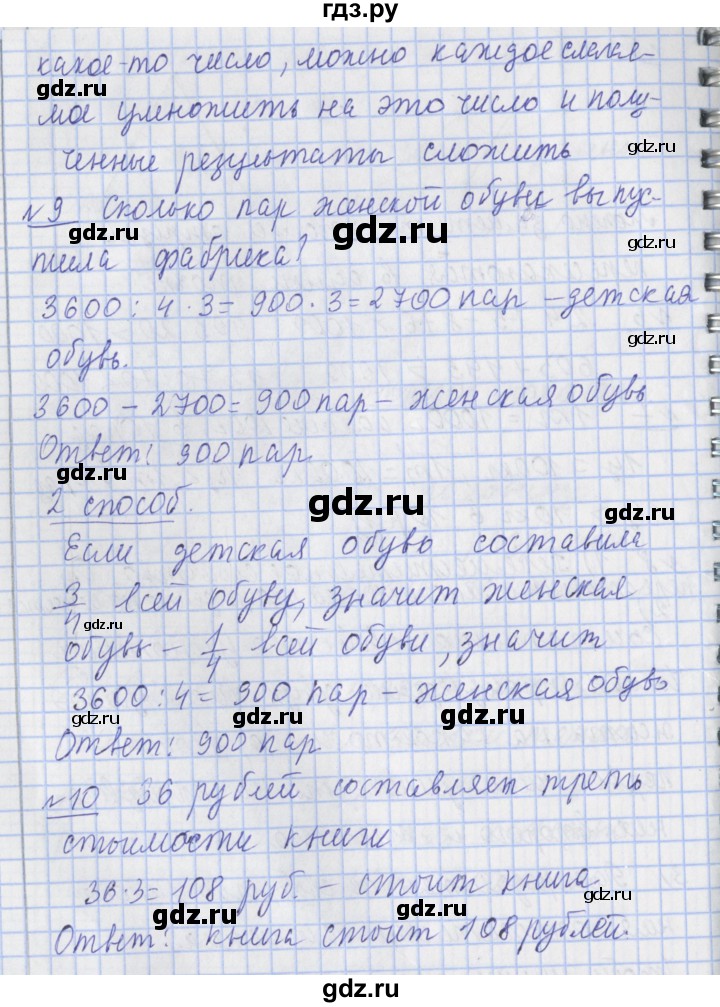 гдз.ру
какое-то число, можно каждое слагае-
gdz.ru
мое умножить на это число и полу-
gdz.ru
ченные результаты сложить
gdz.ru
№9 Сколько пар женской обуви выпус-
gdz.ru
тила фабрика?
gdz.ru
3600 : 4 · 3 = 900 · 3 = 2700 пар – детская
обувь.
gdz.ru
3600 – 2700 = 900 пар – женская обувь
Ответ: 900 пар
gdz.ru
2 способ.
gdz.ru
gdz.ru
Если детская обувь составила
3/4 всей обуви, значит женская
gdz.ru
обувь – 1/4 всей обуви, значит
3600 : 4 = 900 пар – женская обувь
gdz.ru
gdz.ru
Ответ: 900 пар
gdz.ru
№10 36 рублей составляет треть
стоимости книги
36·3=108 руб. – стоит книга
gdz.ru
gdz.ru
Ответ: книга стоит 108 рублей.
gdz.ru